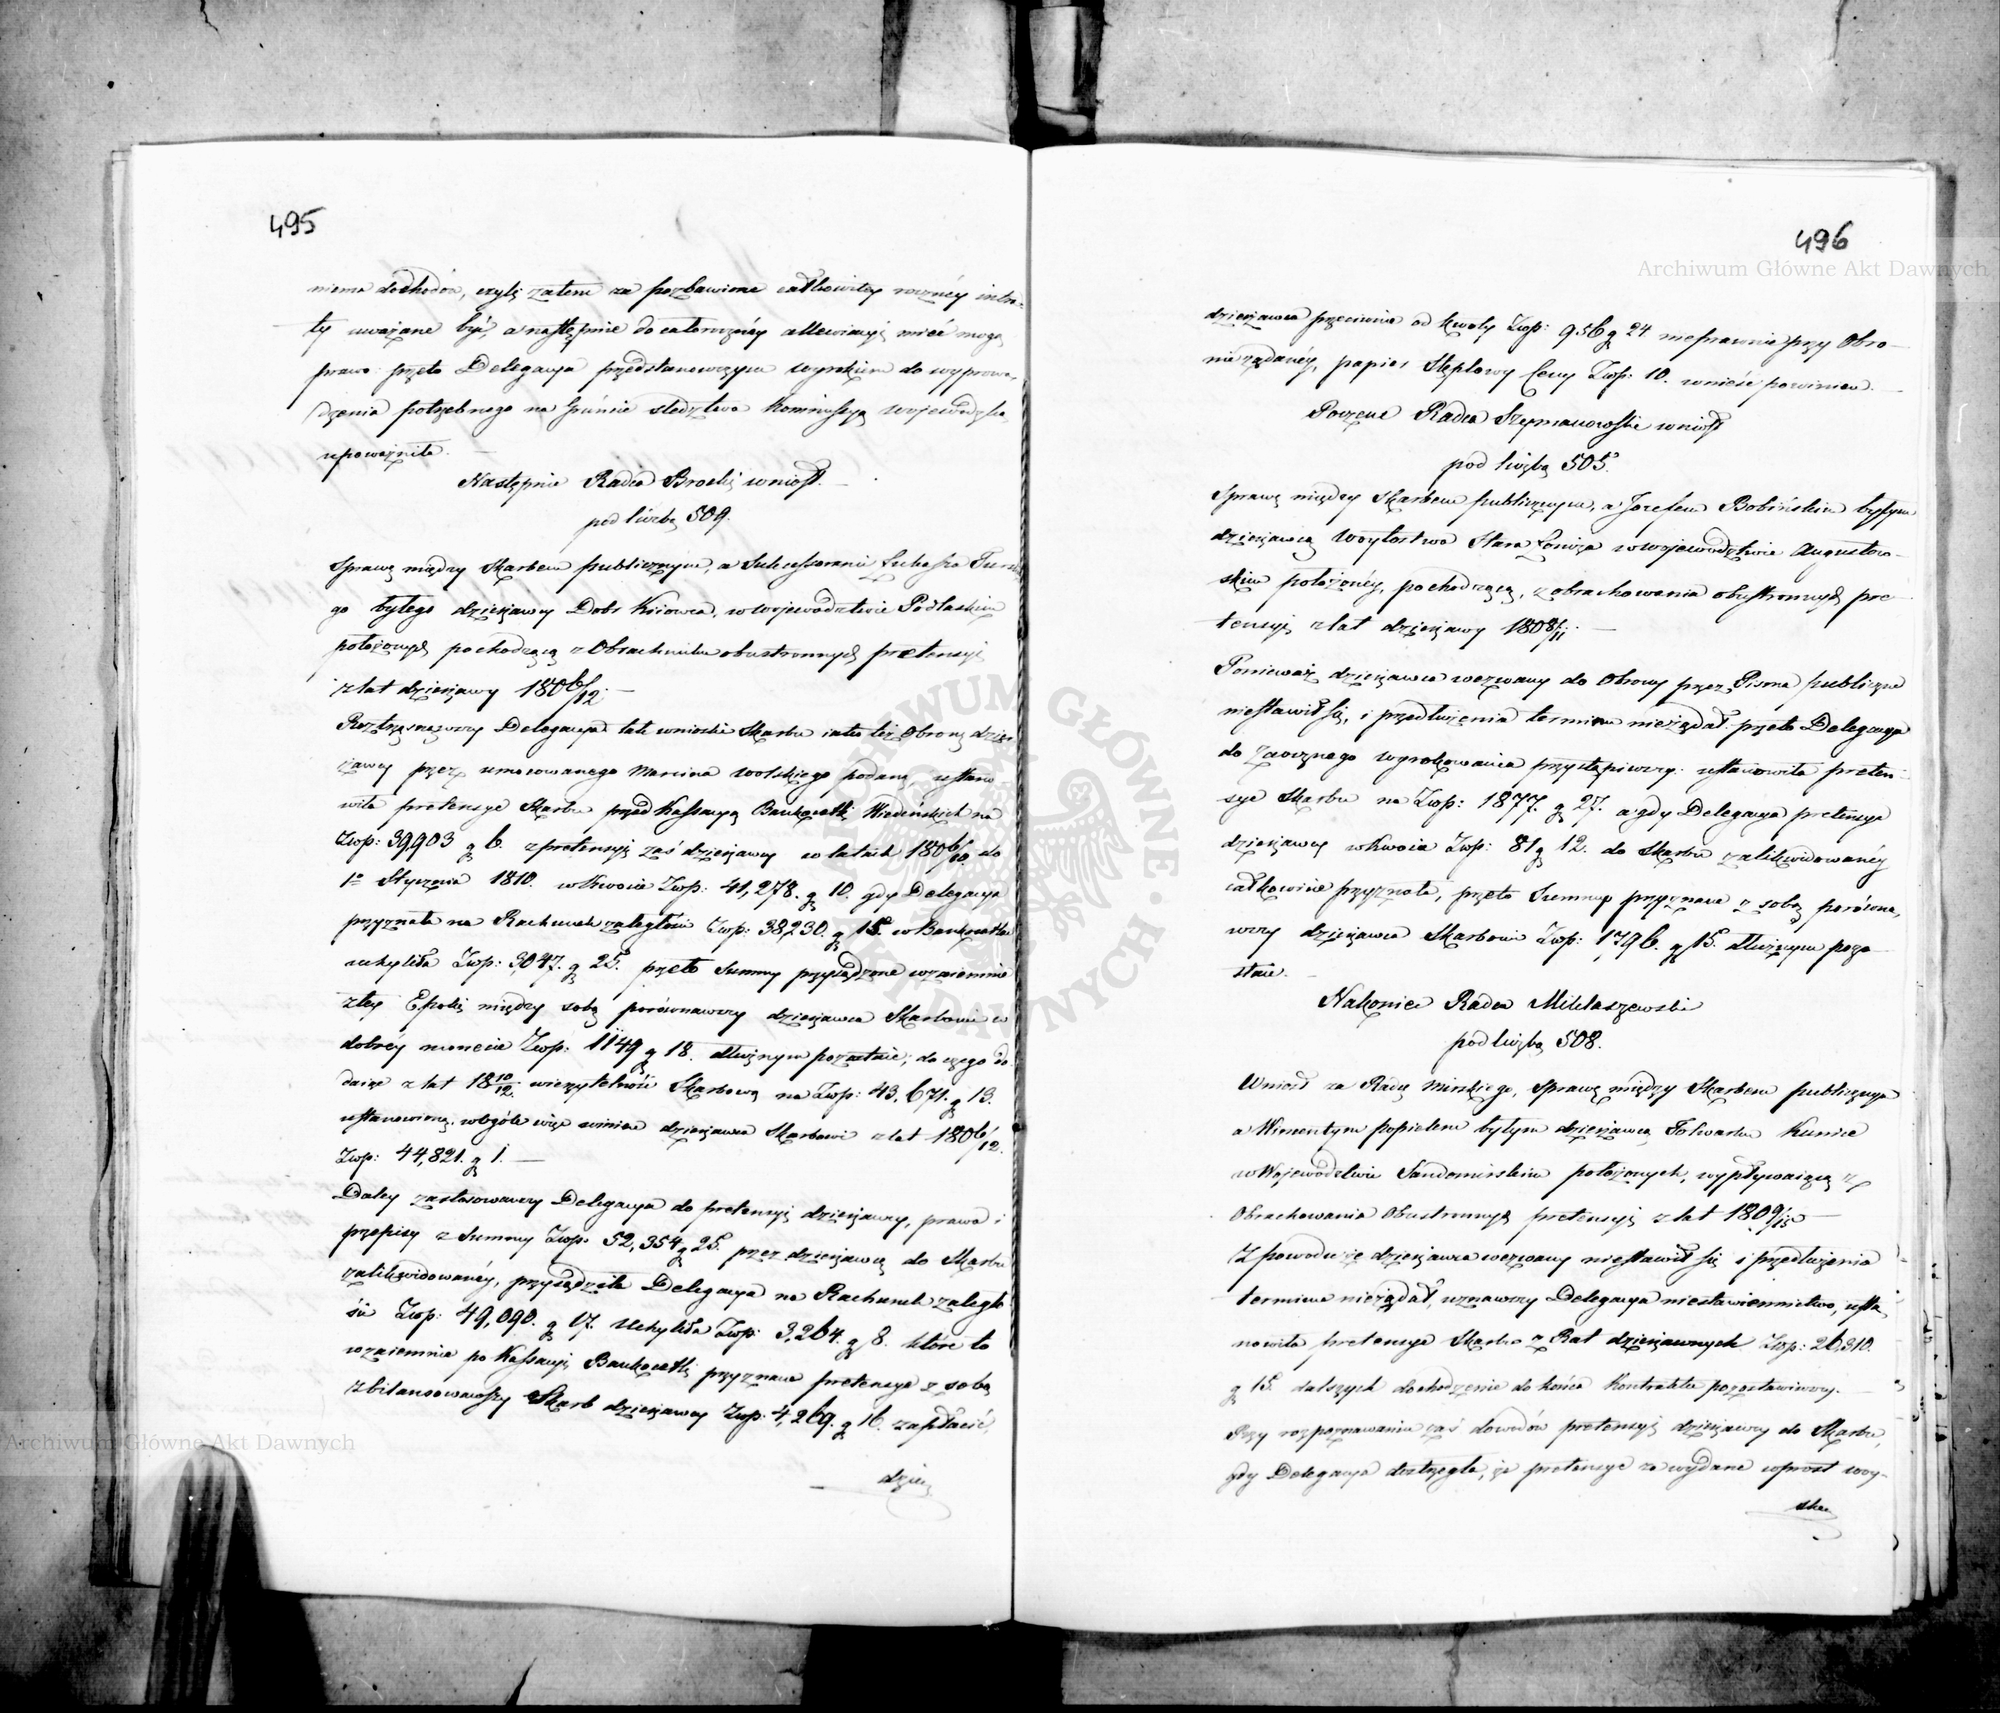 495
niema dochodów, czyli zatem za pozbawione całkowitey roczney intra-
ty uważane być, a następnie do całoroczney allewiacyi mieć mogą
prawo: przeto Delegacya przedstanowczym wyrokiem do wyprowa-
dzenia potrzebnego na gruncie śledztwa Kommissyą Wojewódzką
upoważniła. —
Następnie Radca Brocki wniosł. —
pod liczbą 509.
Sprawę między Skarbem publicznym, a Sukcessorami Łukasza
go byłego dzierżawcy Dobr Kiiowca, w Województwie Podlaskim
położonych pochodzącą z Obrachunku obustronnych pretensyi
z lat dzierżawy 1806/12. —
Roztrząsnąwszy Delegacya tak wnioski Skarbu iako też Obronę dzier-
żawcy przez umocowanego Marcina Wolskiego podaną, ustano-
wiła pretensye Skarbu przed Kassacyą Bankocetli Wiedeńskich na
Złp: 39,903 g 6. z pretensyi zaś dzierżawcy w latach 1806/10. do
1o Stycznia 1810. w kwocie Złp: 41,278. g 10. gdy Delegacya
przyznała na Rachunek zaległości Złp: 38,230. g 15. w Bankocetlach
uchyliła Złp: 3,047. g 25. przeto Summy przysądzone wzaiemnie
z tey Epoki między sobą porównawszy dzierżawca Skarbowi w
dobréy monecie Złp: 1149 g 18. dłużnym pozostaie; do czego do-
daiąc z lat 18 10/12. wierzytelność Skarbową na Złp: 43,671. g 13.
ustanowioną, wogóle więc winien dzierżawca Skarbowi z lat 1806/12.
Złp: 44,821. g 1. —
Daley zastosowawszy Delegacya do pretensyi dzierżawcy, prawa i
przepisy z Summy Złp: 52,354 g 25. przez dzierżawcę do Skarbu
zalikwidowanéy, przysądziła Delegacya na Rachunek zaległo-
ści Złp: 49,090. g 17. Uchyliła Złp: 3,264. g 8. które to
wzaiemnie po Kassacyi Bankocetli przyznane pretensye z sobą
zbilansowawszy Skarb dzierżawcy Złp: 4,269. g 16. zapłacić,
dzier
496
dzierżawca przeciwnie od kwoty Złp: 956 g 24 nieprawnie przy Obro-
nie żądanéy, papier Stęplowy Ceny Złp: 10. wnieść powinien. —
Poczem Radca Szymanowski wniosł
pod liczbą 505.
Sprawę między Skarbem publicznym, a Jozefem Bobińskim byłym
dzierżawcą Woytostwa Stara Łomża w Województwie Augustow-
skim położonéy, pochodzącą, z obrachowania obustronnych pre-
tensyi z lat dzierżawy 1808/11. —
Ponieważ dzierżawca wezwany do Obrony przez Pisma publiczne
niestawił się, i przedłużenia terminu nieżądał: przeto Delegacya
do Zaocznego wyrokowania przystąpiwszy: ustanowiła preten-
sye Skarbu na Złp: 1877. g 27. a gdy Delegacya pretensye
dzierżawcy w kwocie Złp: 81 g 12. do Skarbu zalikwidowanéy
całkowicie przyznała, przeto Summy przyznane z sobą porówna-
wszy dzierżawca Skarbowi Złp: 1,796. g 15. dłużnym pozo-
staie. —
Nakoniec Radca Mikłaszewski
pod liczbą 508.
Wniosł za Radcę Mirskiego, Sprawę między Skarbem publicznym
a Wincentym Popielem byłym dzierżawcą Folwarku Kunice
w Województwie Sandomirskim położonych, wypływaiącą z
Obrachowania Obustronnych pretensyi z lat 1809/15 —
Z powodu że dzierżawca wezwany niestawił się i przedłużenia
terminu nieżądał, uznawszy Delegacya niestawiennictwo, usta-
nowiła pretensye Skarbu z Rat dzierżawnych Złp: 26,310.
g 15. dalszych dochodzenie do końca Kontraktu pozostawiwszy. —
Przy rozpoznawaniu zaś dowodów pretensyi dzierżawcy do Skarbu,
gdy Delegacya dostrzegła, że pretensye za wydane wprost woy-
sku